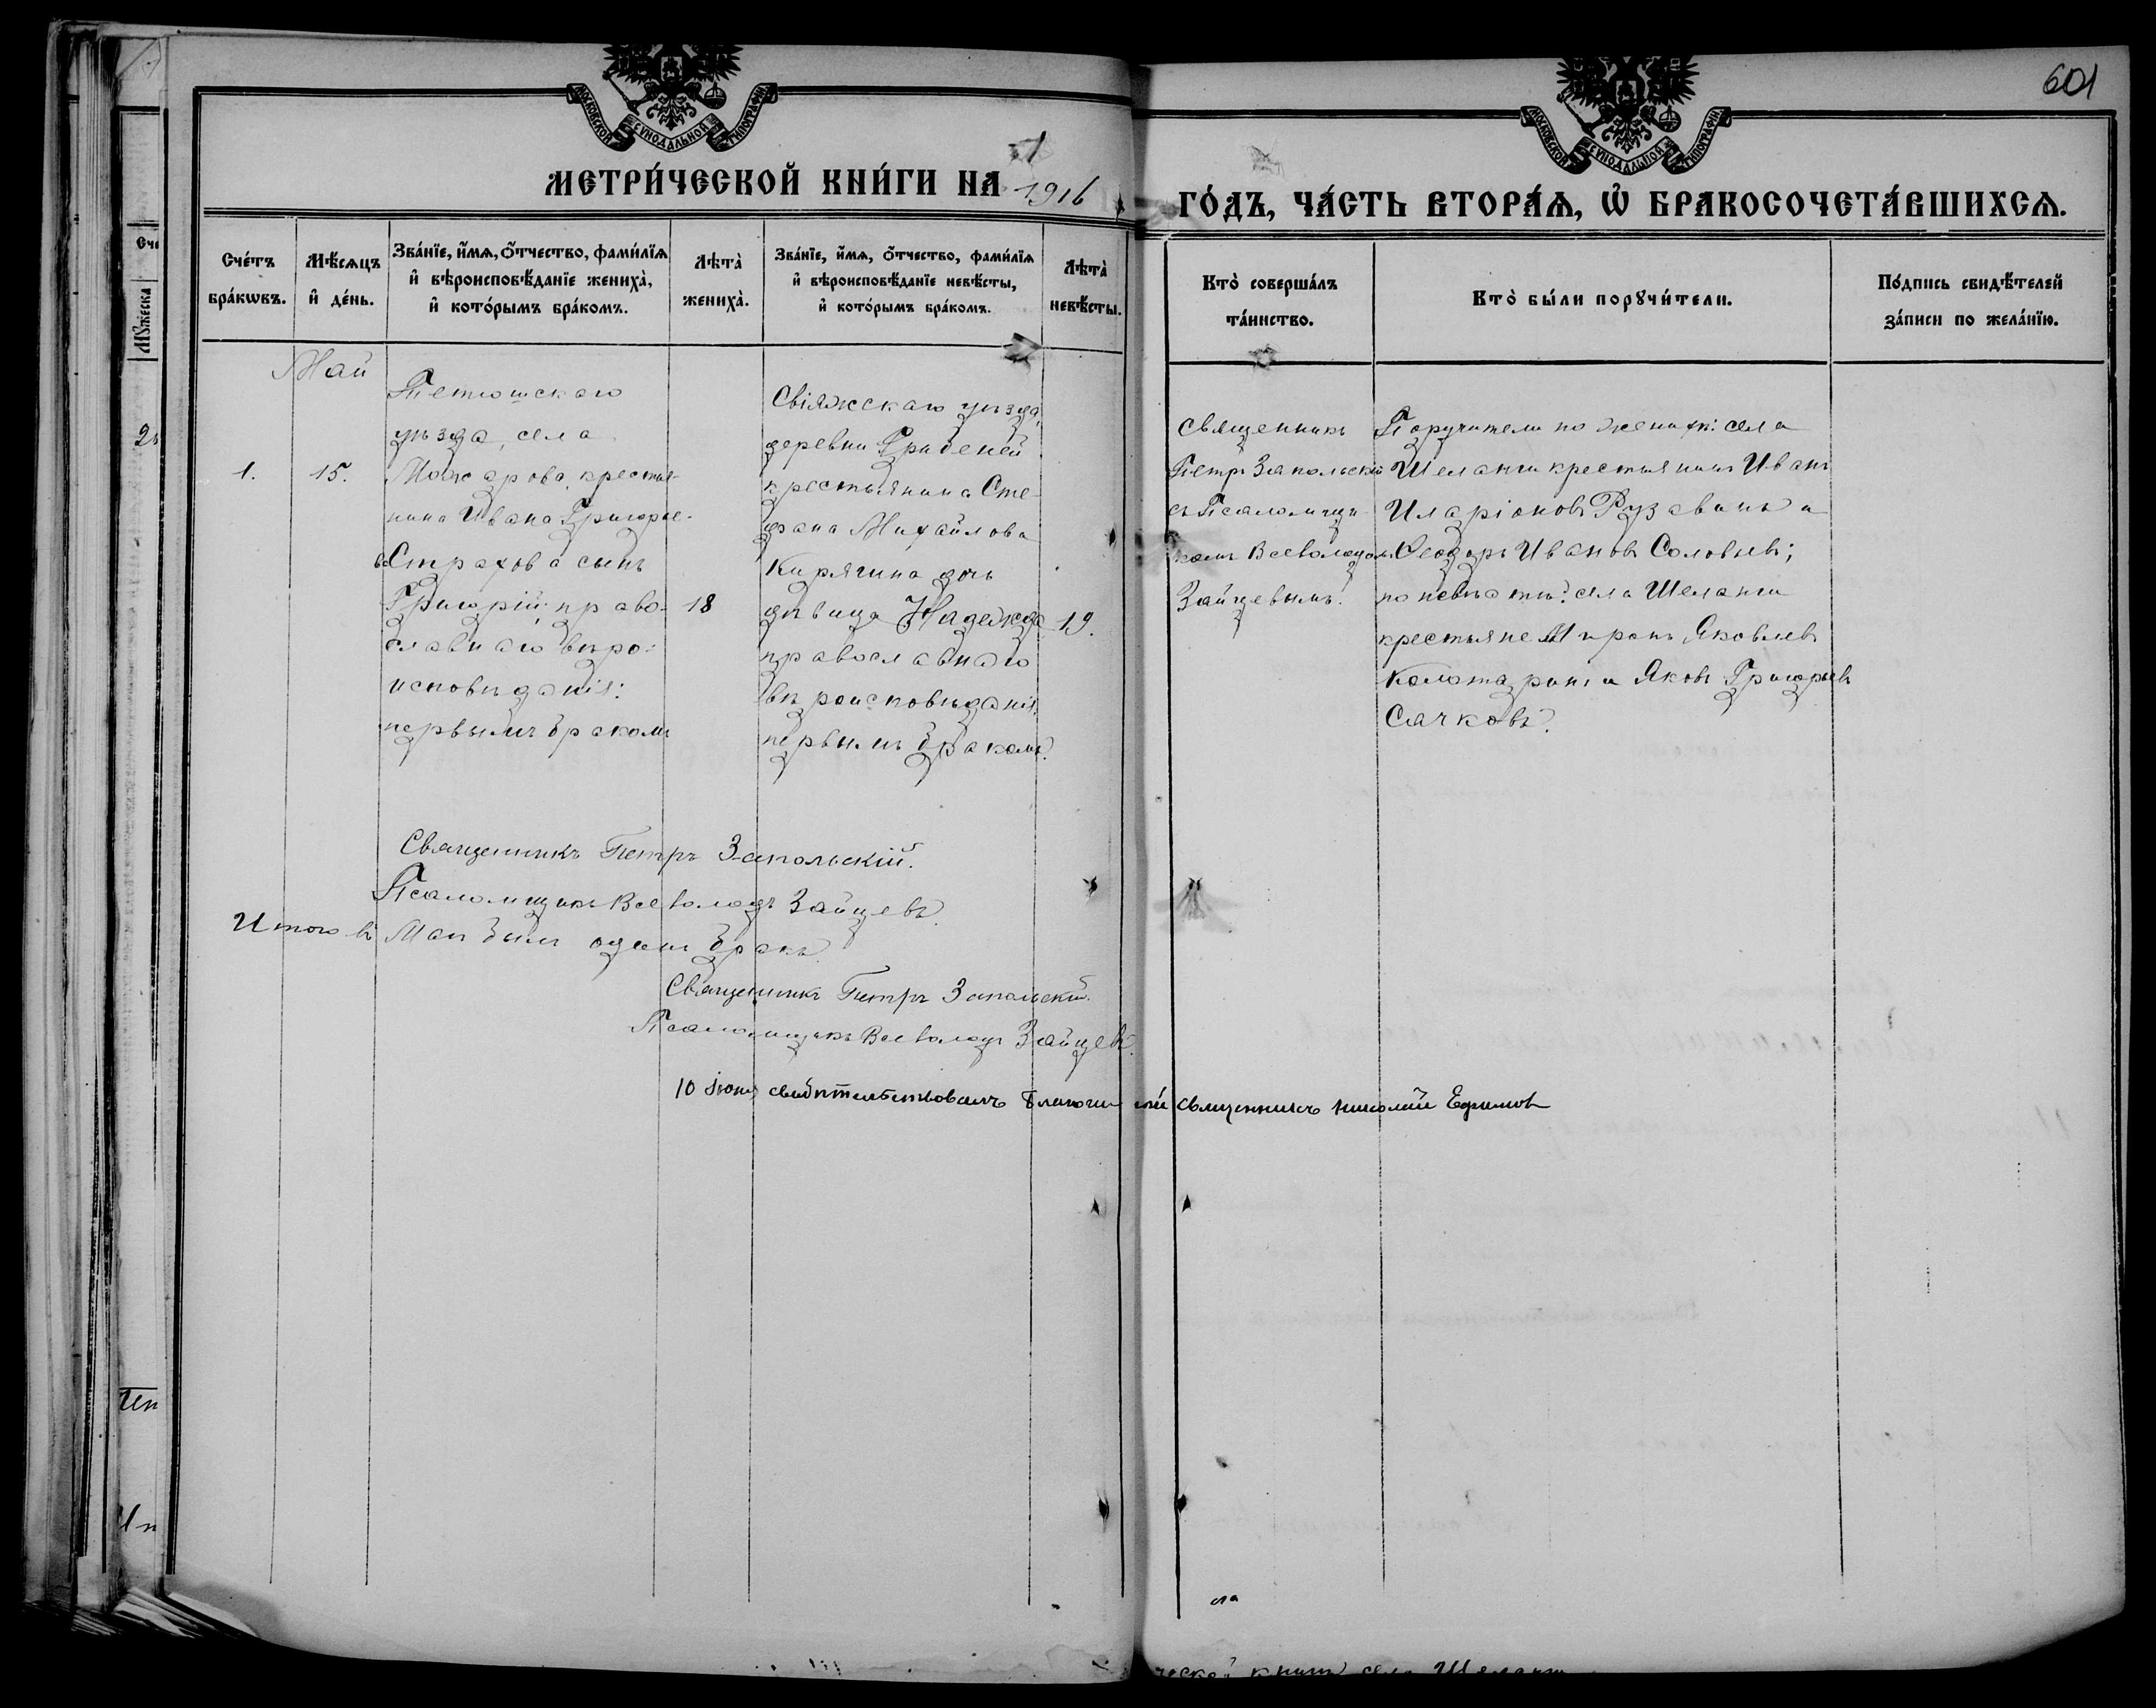 601
МОСКОВСКОЙ СѴНОДАЛЬНОЙ ТИПОГРАФИИ
МОСКОВСКОЙ СѴНОДАЛЬНОЙ ТИПОГРАФИИ
МЕТРИ́ЧЕСКОЙ КНИ́ГИ НА 1916
ГО́ДЪ, ЧА́СТЬ ВТОРА́Ѧ, Ѡ҆ БРАКОСОЧЕТА́ВШИХСѦ.
Сче́тъ
бра́кѡвъ.
Мѣ́сѧцъ
и҆ де́нь.
Зва́нїе, и҆́мѧ, ѻ҆́тчество, фами́лїѧ
и҆ вѣроисповѣ́данїе жениха̀,
и҆ кото́рымъ бра́комъ.
Лѣта̀
жениха̀.
Зва́нїе, и҆́мѧ, ѻ҆́тчество, фами́лїѧ
и҆ вѣроисповѣ́данїе невѣ́сты,
и҆ кото́рымъ бра́комъ.
Лѣта̀
невѣ́сты.
Кто̀ соверша́лъ
та́инство.
Кто̀ бы́ли порꙋчи́тели.
По́дпись свидѣ́телей
за́писи по жела́нїю.
Май
1.
15.
Тетюшскаго
уѣзда, села
Можарова, крестья-
нина Ивана Григорье-
ва Страхова сынъ
Григорій; право-
славнаго вѣро-
исповѣданія:
первымъ бракомъ
18
Свіяжскаго уѣзда,
деревни Гребеней
крестьянина Сте-
фана Михайлова
Кирягина дочь
дѣвица Надежда
православнаго
вѣроисповѣданія:
первымъ бракомъ.
19.
Священникъ
Петръ Запольскій
съ Псаломщи-
комъ Всеволодомъ
Зайцевымъ.
Поручители по женихѣ: села
Шеланги крестьянинъ Иванъ
Иларіоновъ Рузавинъ и
Ѳеодоръ Ивановъ Соловьевъ;
по невѣстѣ: села Шеланги
крестьяне Миронъ Яковлевъ
и Яковъ Григорьевъ
Сачковъ.
Священникъ Петръ Запольскій.
Псаломщикъ Всеволодъ Зайцевъ.
Итого въ Маѣ былъ одинъ бракъ.
Священникъ Петръ Запольскій.
Псаломщикъ Всеволодъ Зайцевъ.
10 іюня свидѣтельствовалъ благочинный священникъ Николай Ефимовъ
книги села Шеланги